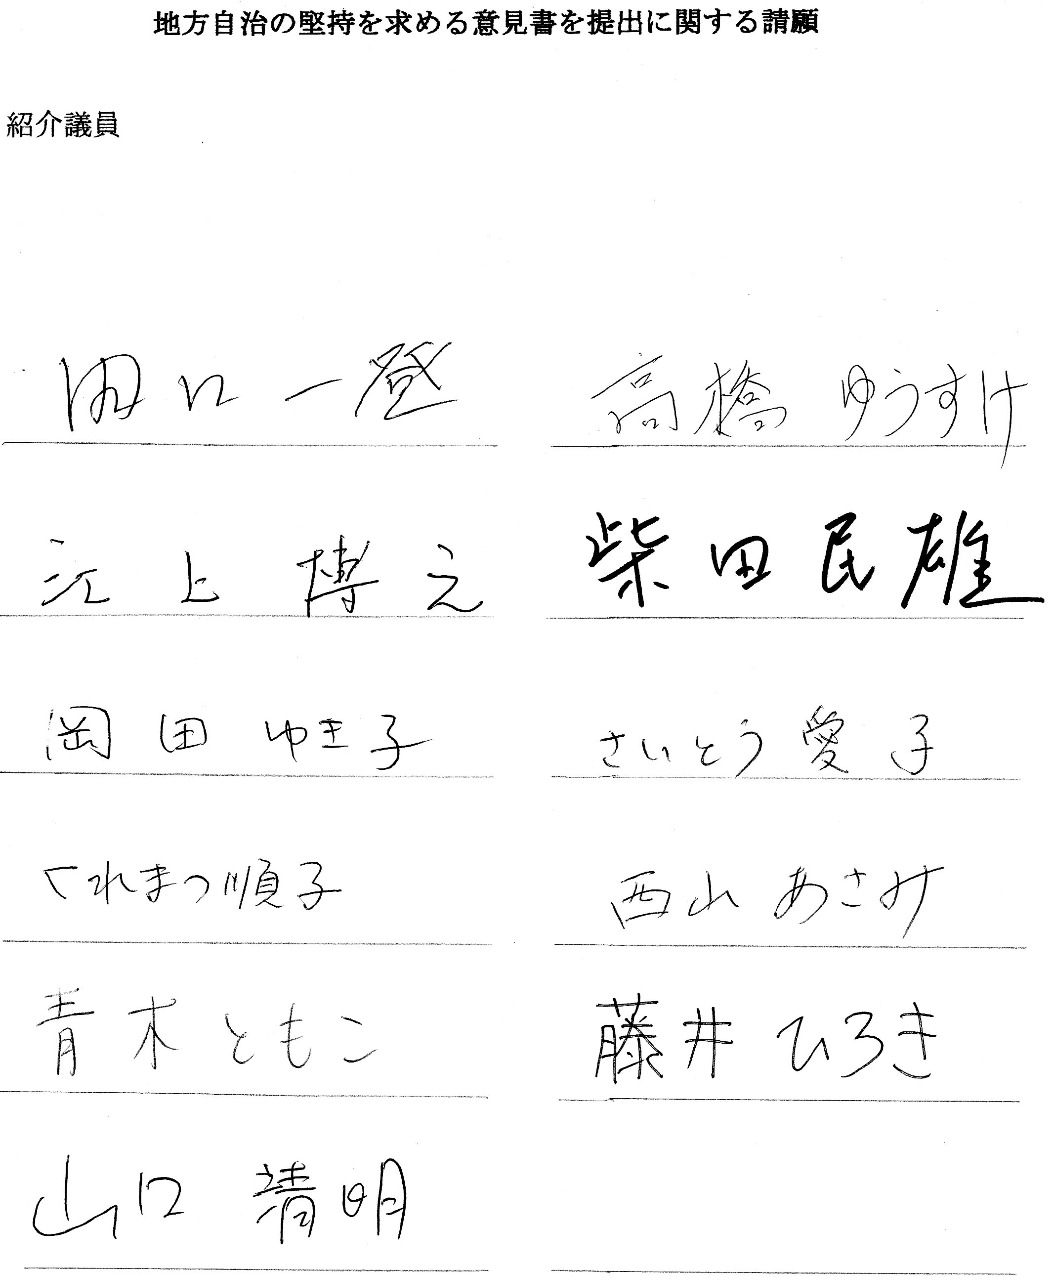 地方自治の堅持を求める意見書を提出に関する請願
紹介議員
田口一登
高橋ゆうすけ
江上博之
柴田民雄
岡田ゆき子
さいとう愛子
くれまつ順子
西山あさみ
青木ともこ
藤井ひろき
山口清明